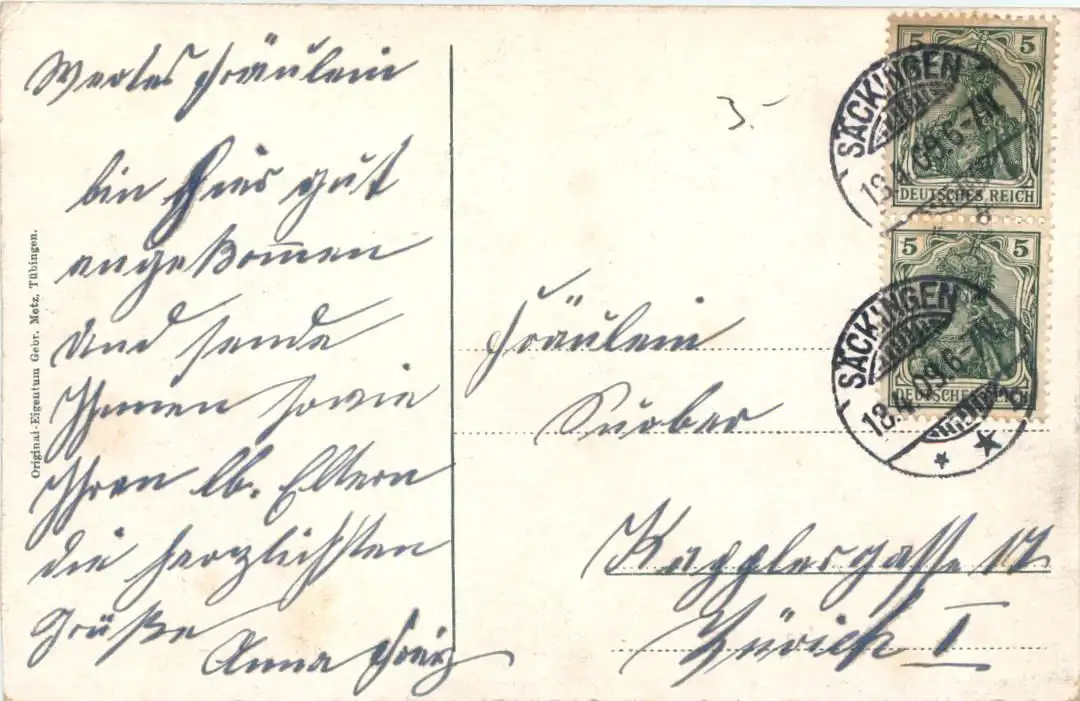 Wertes Fräulein
bin hier gut
angekom̅en
und sende
Ihnen sowie
Ihren lb. Eltern
die herzlichsten
Grüße
Anna
Original-Eigentum Gebr. Metz, Tübingen.
3.-
5 5
DEUTSCHES REICH
SÄCKINGEN
18.4.09.6-7N
5 5
DEUTSCHES REICH
SÄCKINGEN
18.4.09.6-7N
Fräulein
Kapplergasse 17
Zürich I